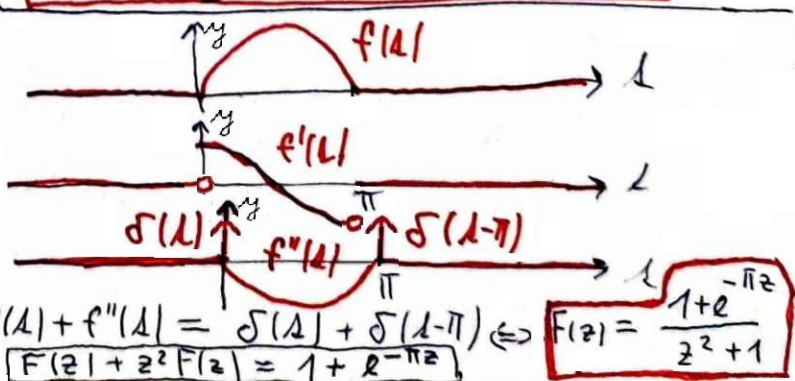 y
f(t)
t
y
f'(t)
π
t
δ(t) y δ(t-π)
f''(t)
π
t
(t) + f''(t) = δ(t) + δ(t-π) ⇔ F(z) = \frac{1+e^{-πz}}{z^2+1}
F(z) + z^2 F(z) = 1 + e^{-πz}